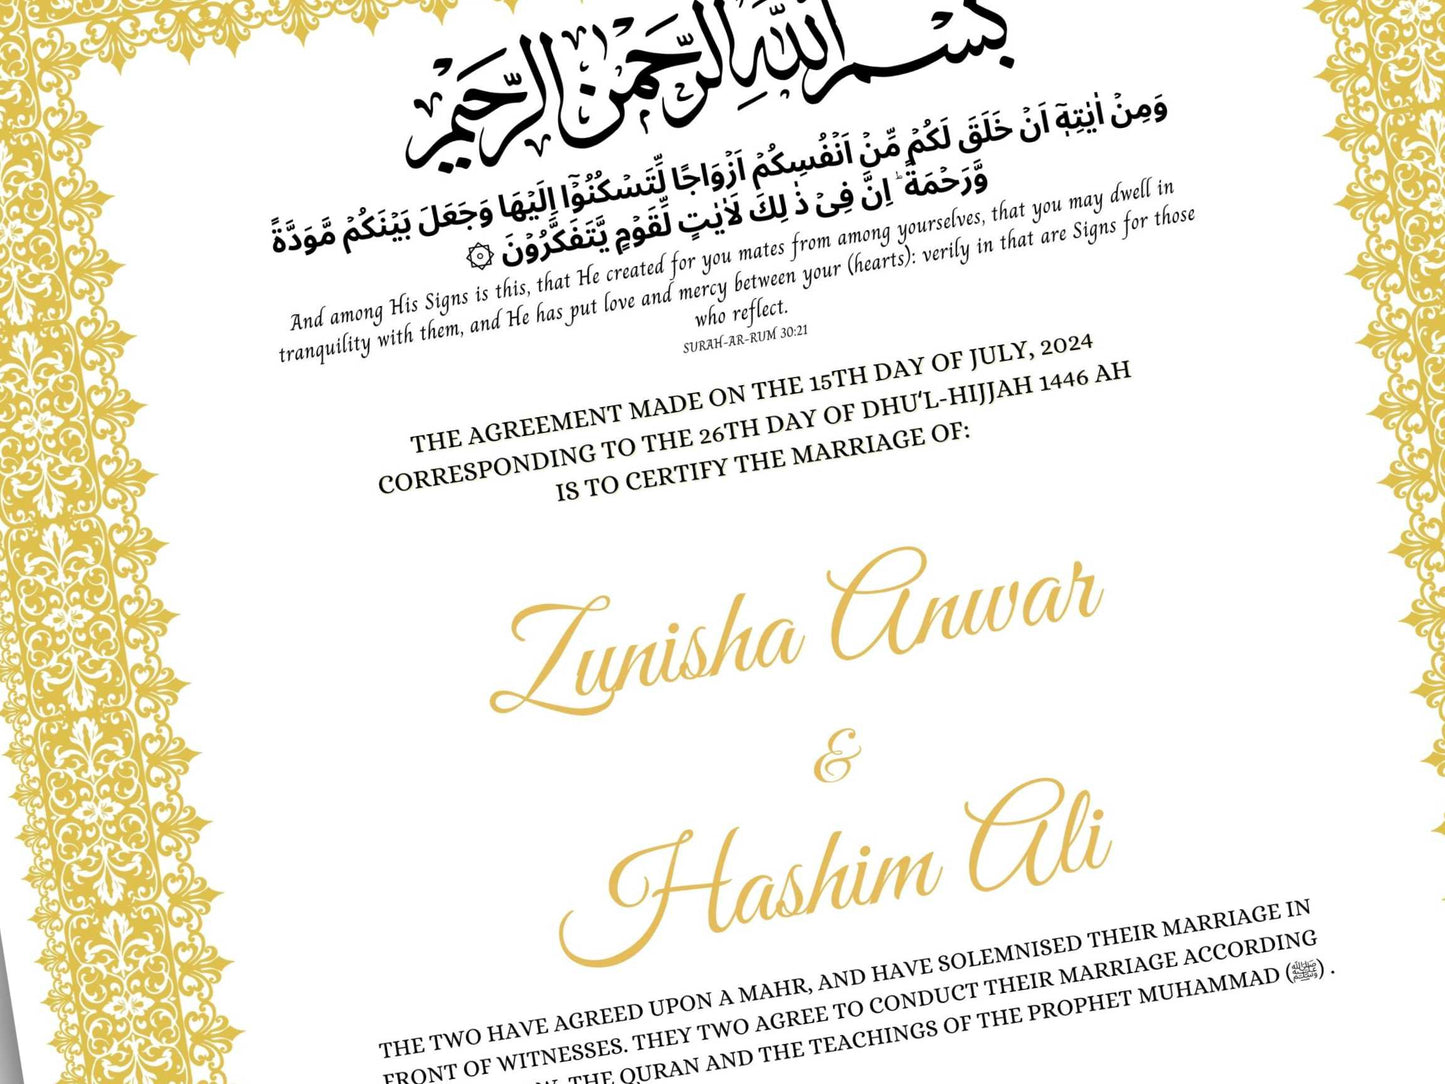 بِسْمِ اللهِ الرَّحْمٰنِ الرَّحِيْمِ
وَمِنْ اٰيٰتِهٖٓ اَنْ خَلَقَ لَكُمْ مِّنْ اَنْفُسِكُمْ اَزْوَاجًا لِّتَسْكُنُوْٓا اِلَيْهَا وَجَعَلَ بَيْنَكُمْ مَّوَدَّةً
وَّرَحْمَةً ؕ اِنَّ فِىْ ذٰ لِكَ لَاٰيٰتٍ لِّقَوْمٍ يَّتَفَكَّرُوْنَ ۞
And among His Signs is this, that He created for you mates from among yourselves, that you may dwell in
tranquility with them, and He has put love and mercy between your (hearts): verily in that are Signs for those
who reflect.
SURAH-AR-RUM 30:21
THE AGREEMENT MADE ON THE 15TH DAY OF JULY, 2024
CORRESPONDING TO THE 26TH DAY OF DHU'L-HIJJAH 1446 AH
IS TO CERTIFY THE MARRIAGE OF:
Zunisha Anwar
&
Hashim Ali
THE TWO HAVE AGREED UPON A MAHR, AND HAVE SOLEMNISED THEIR MARRIAGE IN
FRONT OF WITNESSES. THEY TWO AGREE TO CONDUCT THEIR MARRIAGE ACCORDING
THE QURAN AND THE TEACHINGS OF THE PROPHET MUHAMMAD (ﷺ) .